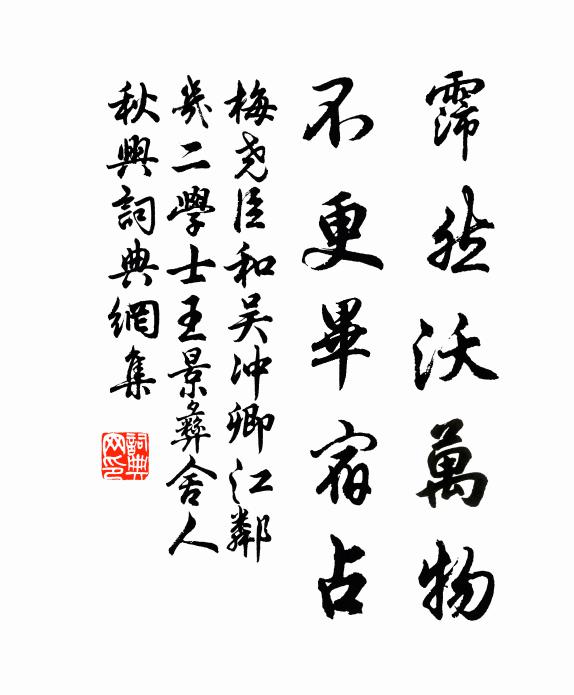 霈然沃萬物
不更畢宿占
梅尧臣和吴冲卿江鄰
幾二學士王景彝舍人
秋興詞典網集
詞典
网印